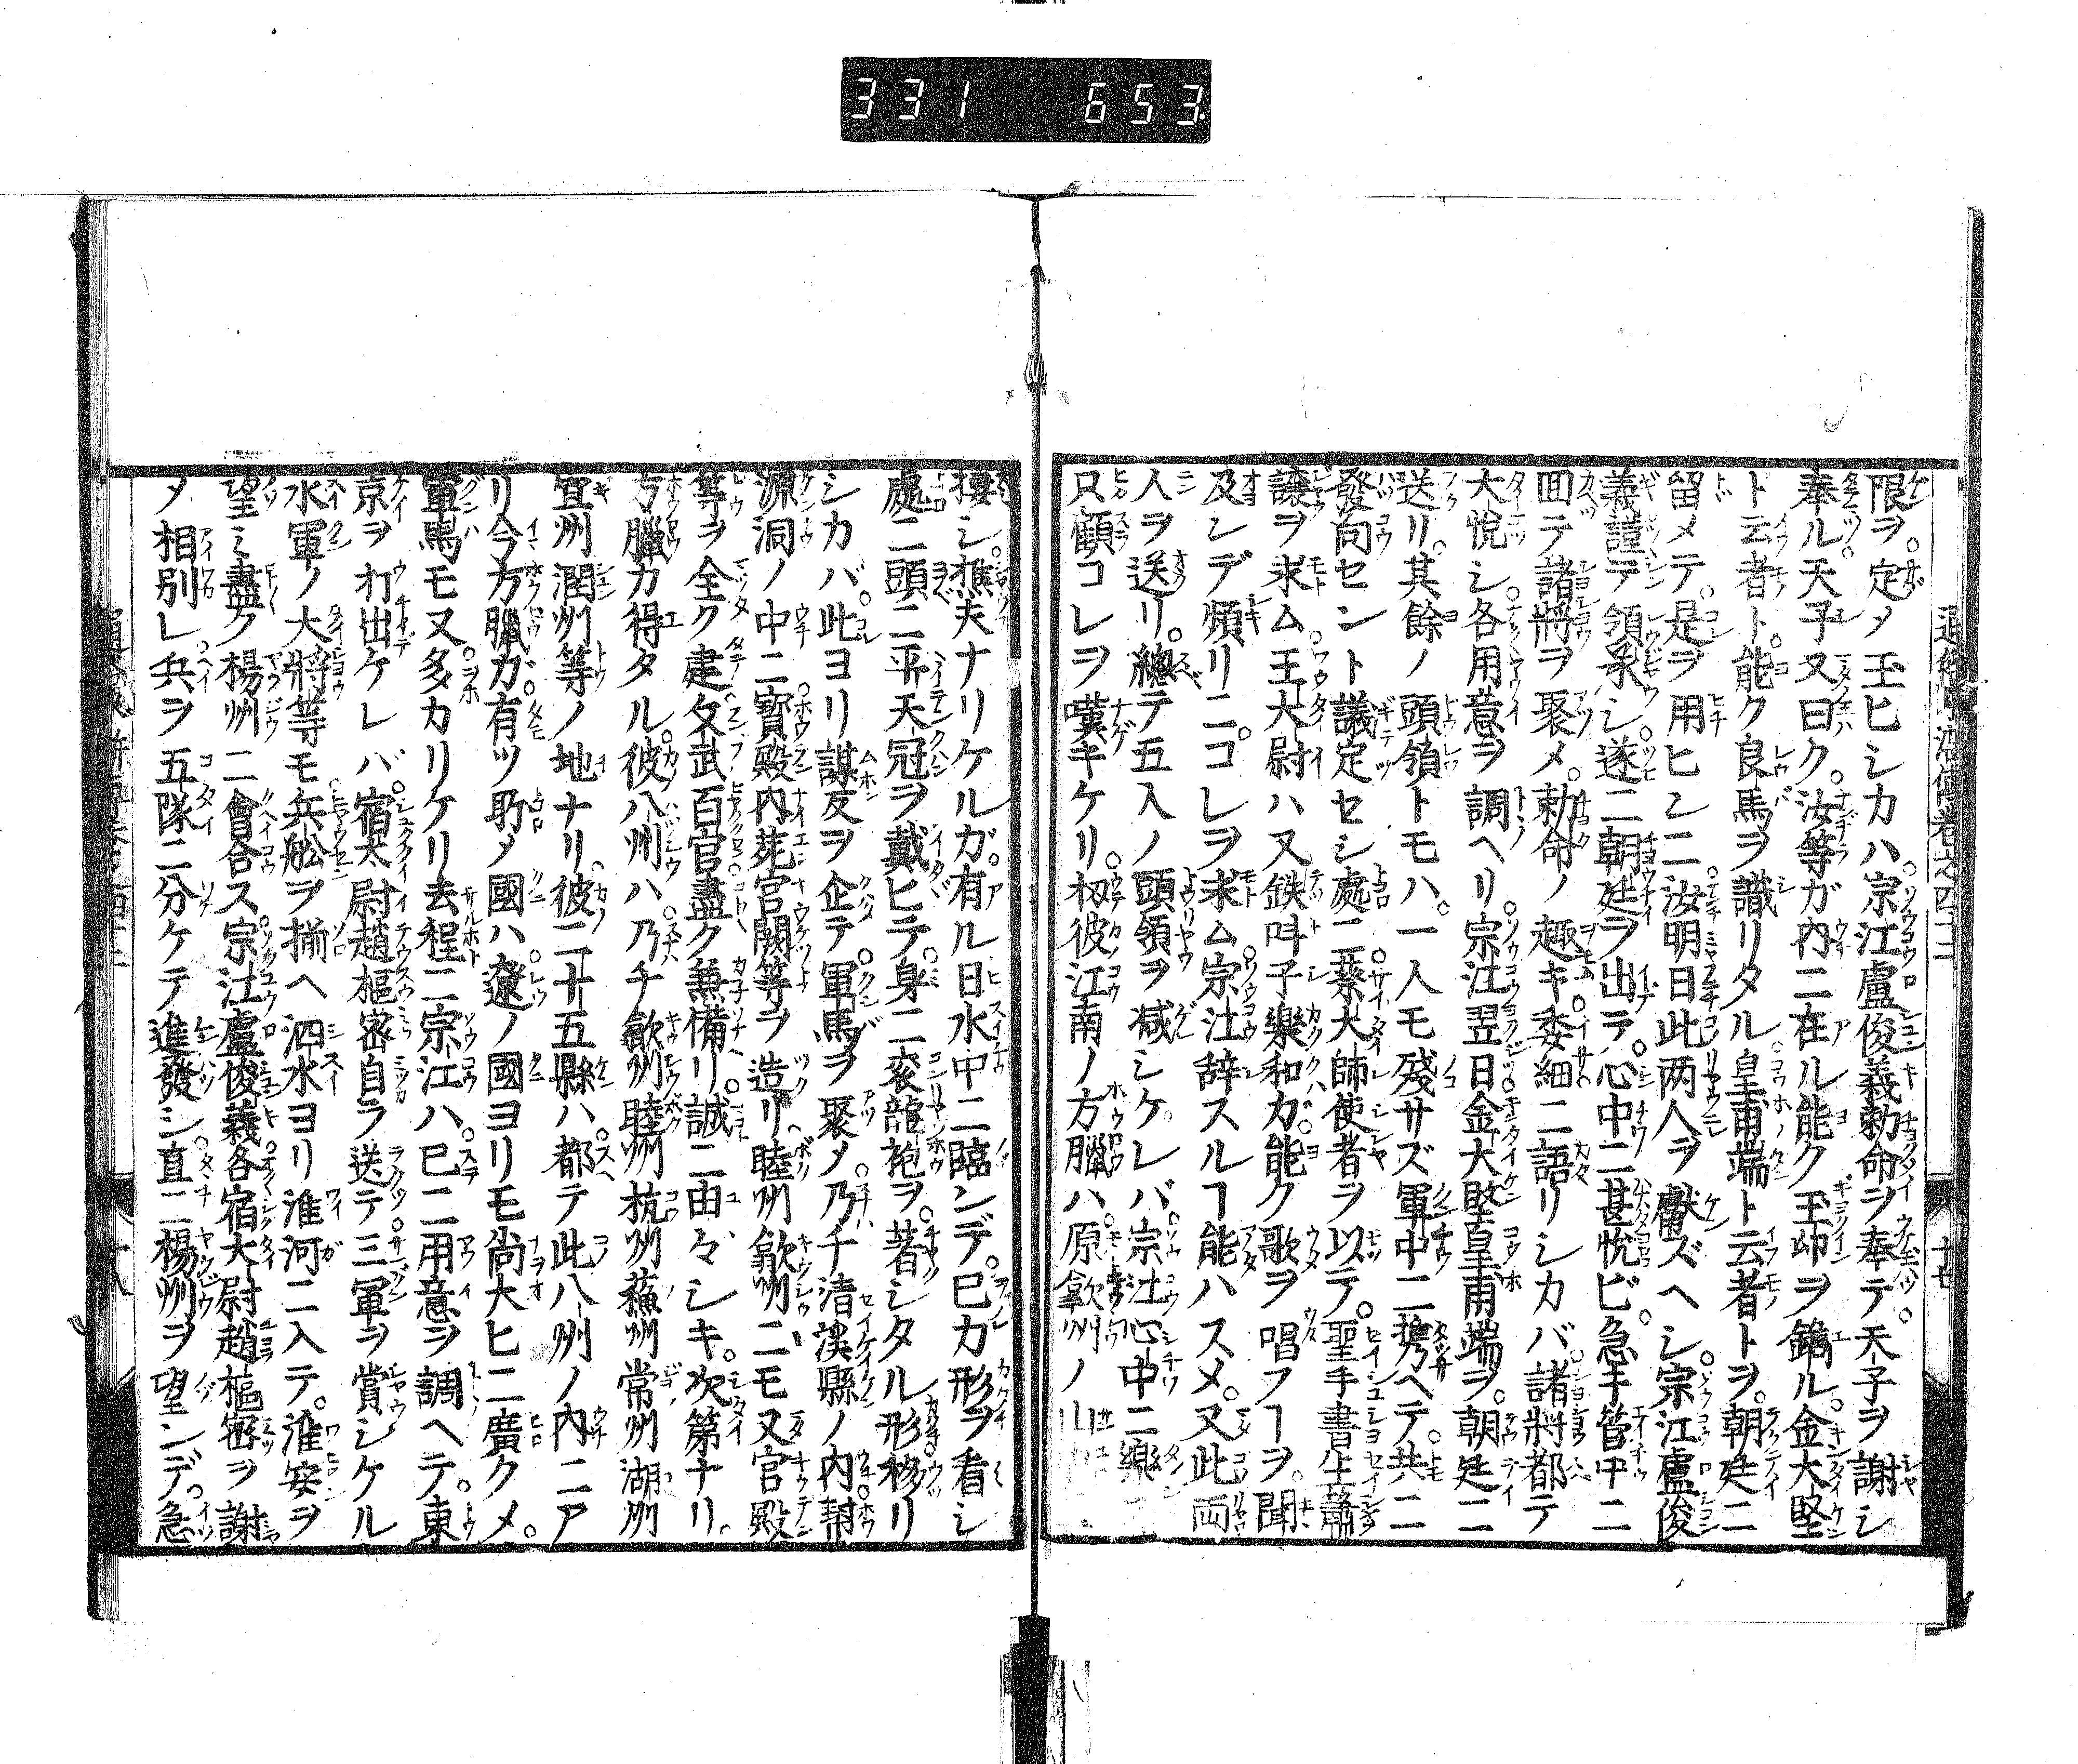 331 653.
限ヲ。定メ玉ヒシカハ。宗江盧俊義勅命ヲ奉テ。天子ヲ謝シ
奉ル。天子又曰ク。汝等ガ内ニ在ル能ク玉印ヲ鐫ル。金大堅
ト云者ト。能ク良馬ヲ識リタル皇甫端ト云者トヲ。朝廷ニ
留メテ。是ヲ用ヒンニ。汝明日此两人ヲ獻ズヘシ。宗江盧俊
義謹テ領承シ。遂ニ朝廷ヲ出テ。心中ニ甚悦ビ。急手營中ニ
回テ諸將ヲ聚メ。勅命ノ趣キ委細ニ語リシカバ。諸將都テ
大悦シ。各用意ヲ調ヘリ。宗江翌日金大堅皇甫端ヲ。朝廷ニ
送リ。其餘ノ頭領トモハ。一人モ殘サズ軍中ニ携ヘテ。共ニ
發向セント議定セシ處ニ。蔡大師使者ヲ以テ。聖手書生蕭
讓ヲ求ム。王大尉ハ又鉄叫子樂和カ。能ク歌ヲ唱フヿヲ。聞
及レデ頻リニ。コレヲ求ム。宗江辞スルヿ能ハスメ。又此両
人ヲ送リ。總テ五人ノ頭領ヲ減シケレバ。宗江心中ニ樂
只顧コレヲ嘆キケリ。扨彼江南ノ方臘ハ。原歙州ノ山
樓シ。樵夫ナリケルガ。有ル日水中ニ臨ンデ。已カ形ヲ看シ
處ニ。頭ニ平天冠ヲ戴ヒテ。身ニ袞龍袍ヲ。著シタル形移リ
シカバ。此ヨリ謀反ヲ企テ。軍馬ヲ聚メ。乃チ清溪縣ノ内幇
源洞ノ中ニ。寳殿内苑宮闕等ヲ造リ。睦州歙州ニモ又宮殿
等ヲ全ク建。文武百官盡ク兼備リ。誠ニ由々シキ。次第ナリ。
方臘カ得タル。彼八州ハ。乃チ歙州睦州杭州蘇州常州湖州
宣州潤州等ノ地ナリ。彼二十五縣ハ。都テ此八州ノ内ニア
リ今方臘ガ。有ツ所メ國ハ。遼ノ國ヨリモ尚大ヒニ廣クメ。
軍馬モ又多カリケリ去程ニ宗江ハ。已ニ用意ヲ調ヘテ。東
京ヲ打出ケレバ。宿太尉趙樞密自ラ送テ。三軍ヲ賞シケル
水軍ノ大將等モ。兵舩ヲ揃ヘ泗水ヨリ淮河ニ入テ。淮安ヲ
望ミ。盡ク楊州ニ會合ス。宗江盧俊義。各宿大尉趙樞密ヲ謝
メ相別レ。兵ヲ五隊ニ分ケテ進發シ。直ニ楊州ヲ望ンデ。急